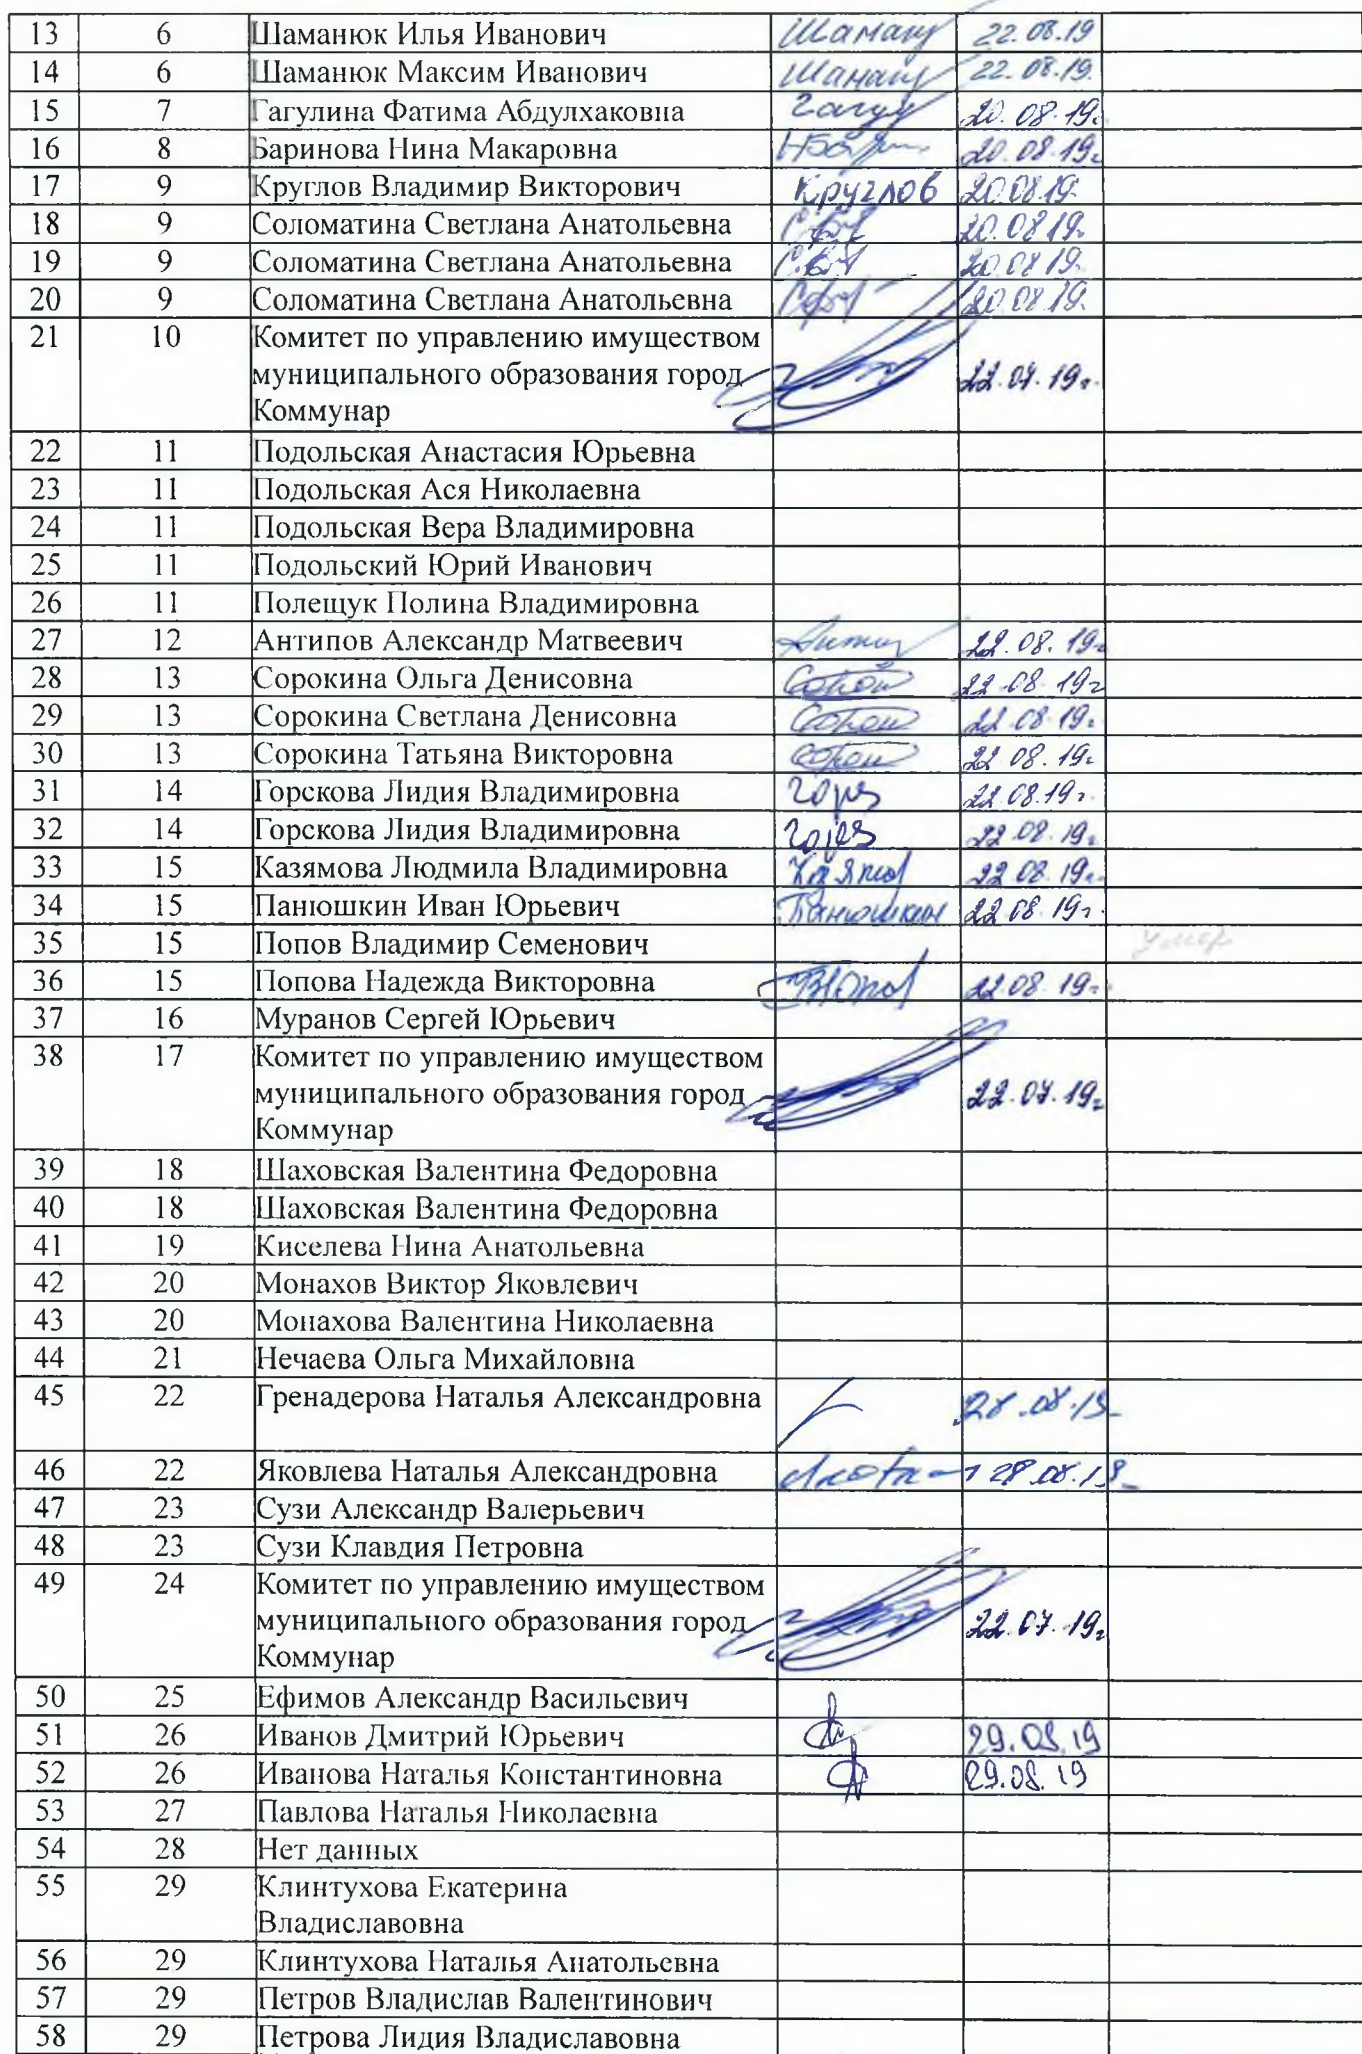 13 6 Шаманюк Илья Иванович Шаманю 22.08.19
14 6 Шаманюк Максим Иванович Шаманю 22.08.19.
15 7 Гагулина Фатима Абдулхаковна Гагул 20.08.19г
16 8 Баринова Нина Макаровна 20.08.19г
17 9 Круглов Владимир Викторович Круглов 20.08.19.
18 9 Соломатина Светлана Анатольевна 20.08.19.
19 9 Соломатина Светлана Анатольевна 20.08.19.
20 9 Соломатина Светлана Анатольевна 20.08.19.
21 10 Комитет по управлению имуществом
муниципального образования город 22.07.19г.
Коммунар
22 11 Подольская Анастасия Юрьевна
23 11 Подольская Ася Николаевна
24 11 Подольская Вера Владимировна
25 11 Подольский Юрий Иванович
26 11 Полещук Полина Владимировна
27 12 Антипов Александр Матвеевич 22.08.19г
28 13 Сорокина Ольга Денисовна Сорок 22.08.19г
29 13 Сорокина Светлана Денисовна Сорок 22.08.19г
30 13 Сорокина Татьяна Викторовна Сорок 22.08.19г
31 14 Горскова Лидия Владимировна Горс 22.08.19г.
32 14 Горскова Лидия Владимировна Горс 22.08.19г
33 15 Казямова Людмила Владимировна 22.08.19г.
34 15 Панюшкин Иван Юрьевич Панюшкин 22.08.19г.
35 15 Попов Владимир Семенович умер
36 15 Попова Надежда Викторовна 22.08.19г
37 16 Муранов Сергей Юрьевич
38 17 Комитет по управлению имуществом
муниципального образования город 22.07.19г
Коммунар
39 18 Шаховская Валентина Федоровна
40 18 Шаховская Валентина Федоровна
41 19 Киселева Нина Анатольевна
42 20 Монахов Виктор Яковлевич
43 20 Монахова Валентина Николаевна
44 21 Нечаева Ольга Михайловна
45 22 Гренадерова Наталья Александровна 28.08.19
46 22 Яковлева Наталья Александровна 28.08.19
47 23 Сузи Александр Валерьевич
48 23 Сузи Клавдия Петровна
49 24 Комитет по управлению имуществом
муниципального образования город 22.07.19г
Коммунар
50 25 Ефимов Александр Васильевич
51 26 Иванов Дмитрий Юрьевич 29.08.19
52 26 Иванова Наталья Константиновна 29.08.19
53 27 Павлова Наталья Николаевна
54 28 Нет данных
55 29 Клинтухова Екатерина
Владиславовна
56 29 Клинтухова Наталья Анатольевна
57 29 Петров Владислав Валентинович
58 29 Петрова Лидия Владиславовна